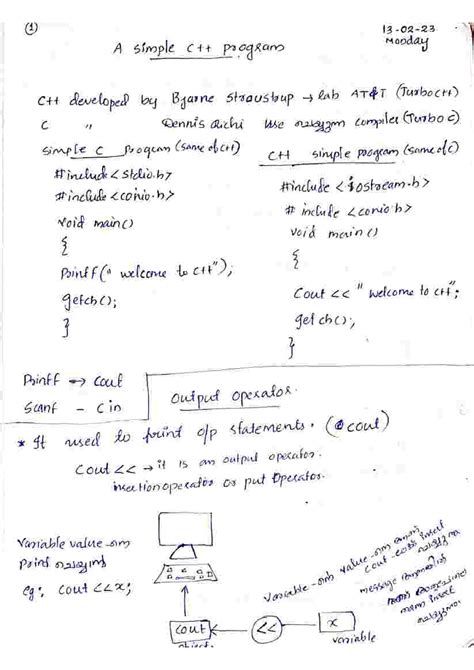 ①
13-02-23
Monday
A simple C++ program
C++ developed by Bjarne Stroustrup → lab AT&T (Turbo C++)
C " Dennis Richi use compiler (Turbo C)
simple C program (same of C++)
C++ simple program (same of C)
#include <stdio.h>
#include <conio.h>
void main()
{
Printf (" welcome to C++");
getch();
}
#include <iostream.h>
# include <conio.h>
void main()
{
Cout << " welcome to C++";
getch();
}
Printf ↔ Cout
Scanf - Cin
Output Operator.
* It used to print o/p statements. (cout)
Cout << → it is an output operator.
insertion operator or put Operator.
Variable value
Print
eg: Cout <<x;
cout
<<
x
variable
object
Variable value
cout insert
message
insert